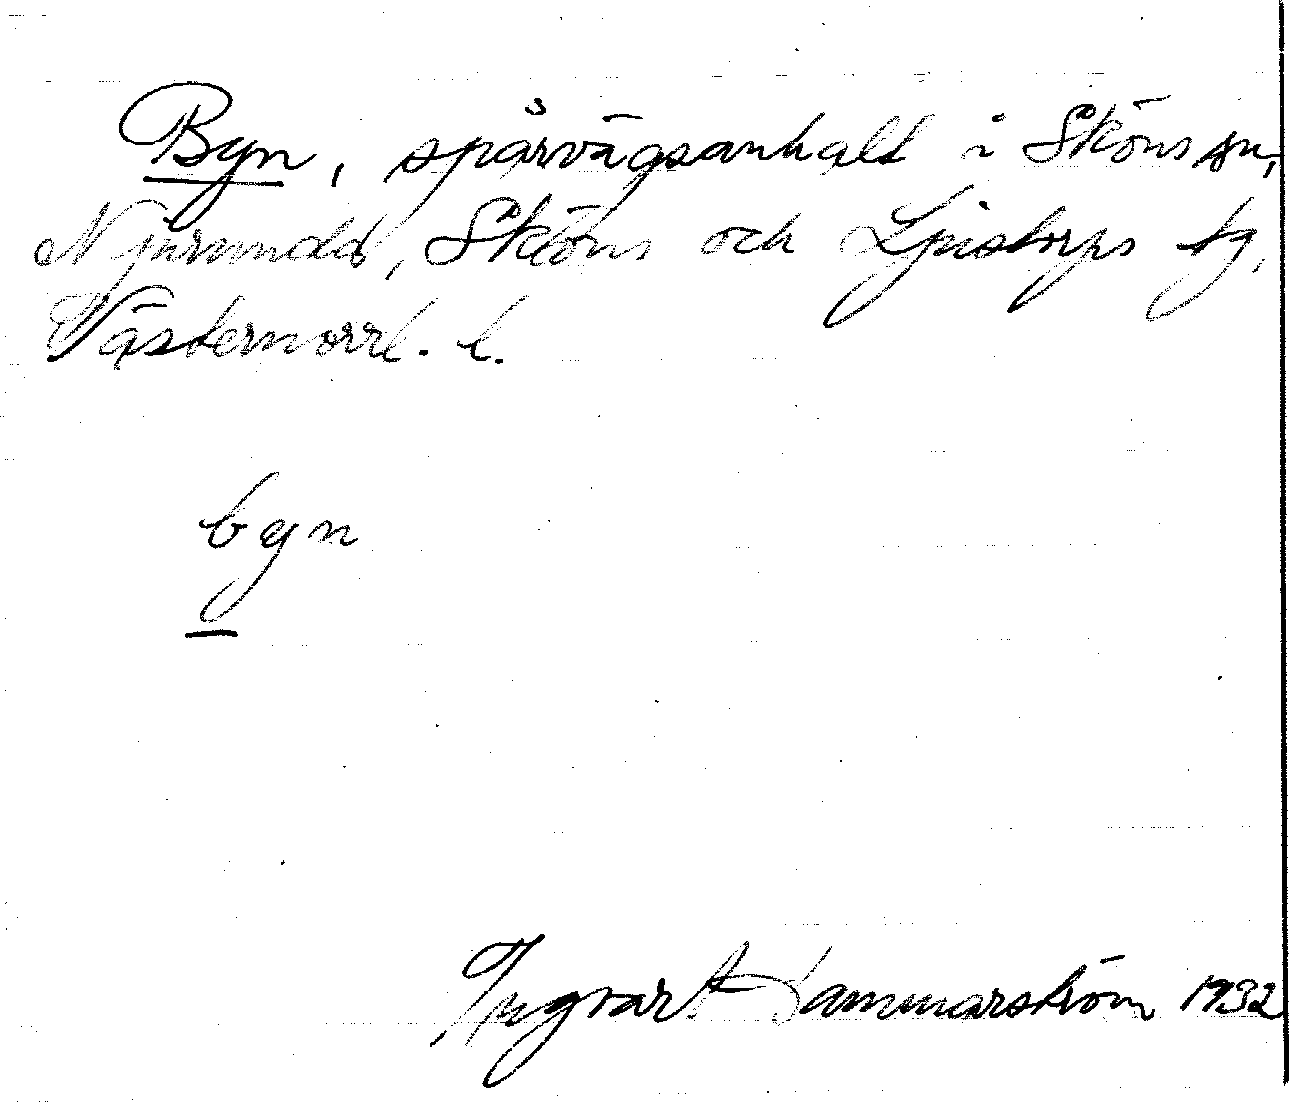 Byn, spårvägsanhalt i Sköns sn,
Njurunda, Sköns och Ljustorps tg,
Västernorrl. l.
byn
Ingvar Hammarström 1932